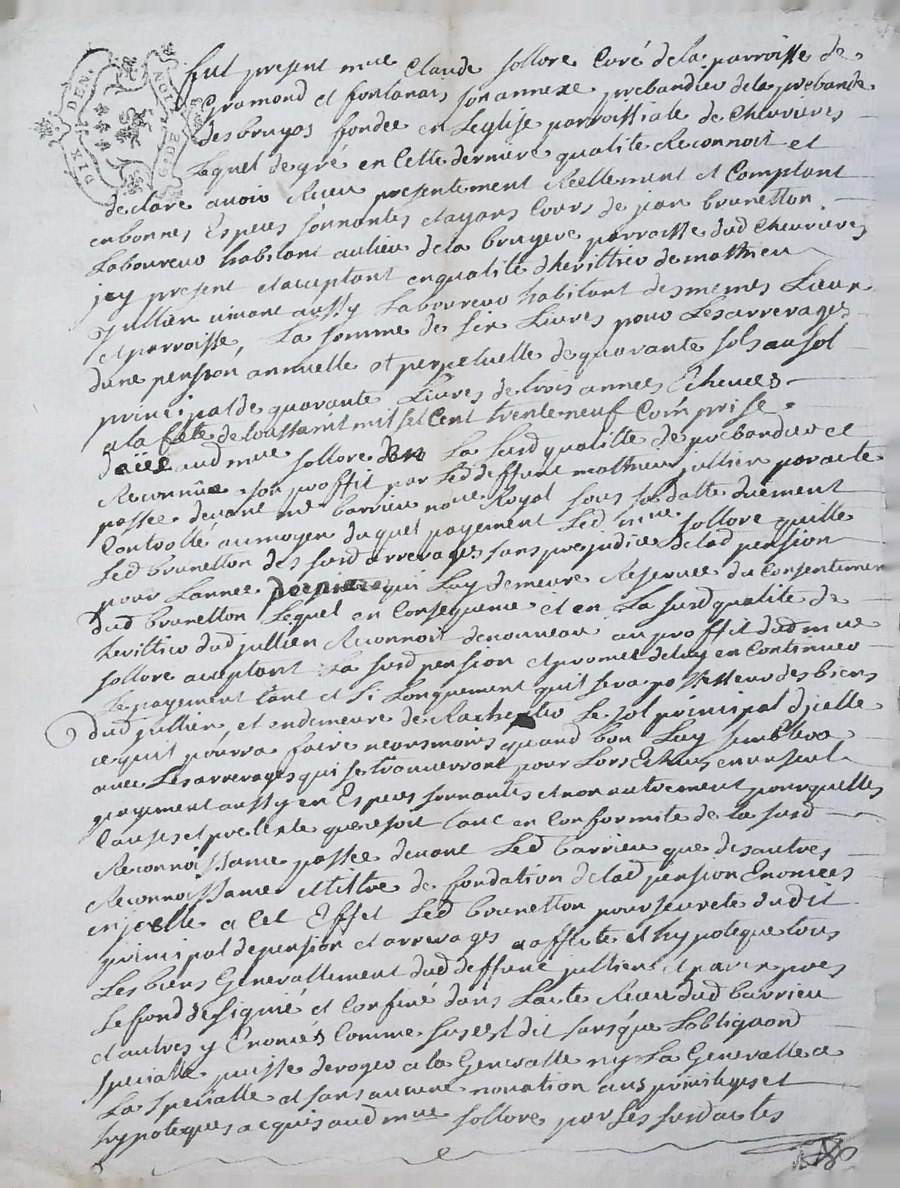 DIX DEN. NOIT G. DE
fut present mre Claude sollore Curé de la parroisse de
Gramond et fontanais son annexe prebandier de la prebande
des bruyas fondée en Leglise parroissialle de Chevrieres
Lequel de gré en Cette derniere qualité Reconnoit et
declare avoir Receu presentement Reellement et Comptant
en bonnes Especes sonnantes et ayans Cours de jean brunetton
Laboureur habitant au lieu de la bruyere parroisse dud Chevrieres
jcy present et acceptant en qualité dherittier de mathieu
jullien vivant aussy Laboureur habitant des memes Lieux
et parroisse, La somme de six Livres pour Les arrerages
dune pension annuelle et perpetuelle de quarante sols au sol
principal de quarante Livres de trois années Echeues
a la fete de toussaint mil sept Cent trente neuf Comprise
aud mre sollore en La susd qualitté de prebandier et
Reconnüe a son proffit par Led deffunt mathieu jullien par acte
passée devant me barrieu nore Royal sous sa datte duement
Controllé au moyen duquel payement Led mre sollore quitte
Led brunetton des susd arrerages sans prejudice de lad pension
pour Lannée qui Luy demeure Reservée du Consentement
dud brunetton Lequel en Consequence et en La susd qualité de
herittier dud jullien Reconnoit de nouveau au proffit dud mre
sollore aceptant La susd pension et promet de luy en Continuer
Le payement tant et si Longuement quil sera possesseur des biens
dud jullien, et en demeure de Rachepter Le sol principal djcelle
ce quil pourra faire neansmoins quand bon Luy semblera
avec Les arrerages qui se trouverront pour Lors Echus en un seul
payement aussy en Especes sonnantes et non autrement pour quelles
Causes et pretexte que ce soit tant en Conformité de La susd
Reconnoissance passée devant Led barrieu que des autres
Reconnoissance et tiltre de fondation de lad pension Enoncées
en jcelle a Cet Effet Led brunetton pour seureté dudit
principal de pension et arrerages affecte et hypoteque tous
Les biens Generallement dud deffunt jullien et par expres
Le fond designié et Confiné dans Lacte Receu dud barrieu
et autres y Enoncés Comme sus est dit sans que Lobligaon
specialle puisse deroger a la Generalle ny La Generalle a
La specialle et sans aucune novation aux privileges et
hypoteques acquis aud mre sollore par Les susd actes